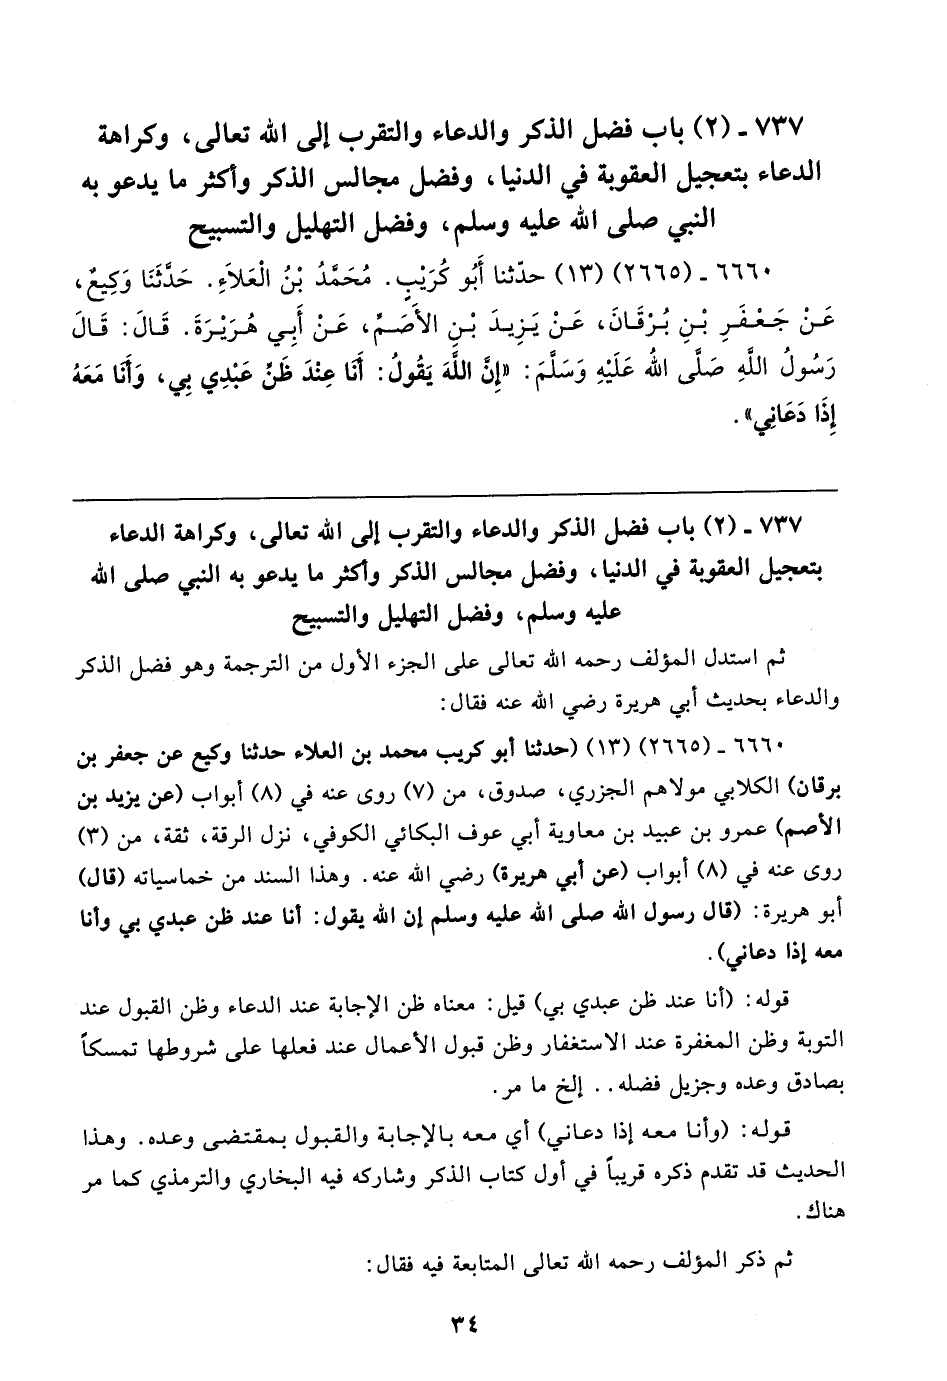 ٧٣٧ - (٢) باب فضل الذكر والدعاء والتقرب إلى الله تعالى، وكراهة
الدعاء بتعجيل العقوبة في الدنيا، وفضل مجالس الذكر وأكثر ما يدعو به
النبي صلى الله عليه وسلم، وفضل التهليل والتسبيح
٦٦٦٠ - (٢٦٦٥) (١٣) حدّثنا أَبُو كُرَيْبٍ. مُحَمَّدُ بْنُ الْعَلاَءِ. حَدَّثَنَا وَكِيعٌ،
عَنْ جَعْفَرِ بْنِ بُرْقَانَ، عَنْ يَزِيدَ بْنِ الأَصَمِّ، عَنْ أَبِي هُرَيْرَةَ. قَالَ: قَالَ
رَسُولُ اللَّهِ صَلَّى اللهُ عَلَيْهِ وَسَلَّمَ: «إِنَّ اللَّهَ يَقُولُ: أَنَا عِنْدَ ظَنِّ عَبْدِي بِي، وَأَنَا مَعَهُ
إِذَا دَعَانِي».
٧٣٧ - (٢) باب فضل الذكر والدعاء والتقرب إلى الله تعالى، وكراهة الدعاء
بتعجيل العقوبة في الدنيا، وفضل مجالس الذكر وأكثر ما يدعو به النبي صلى الله
عليه وسلم، وفضل التهليل والتسبيح
ثم استدل المؤلف رحمه الله تعالى على الجزء الأول من الترجمة وهو فضل الذكر
والدعاء بحديث أبي هريرة رضي الله عنه فقال:
٦٦٦٠ - (٢٦٦٥) (١٣) (حدثنا أبو كريب محمد بن العلاء حدثنا وكيع عن جعفر بن
برقان) الكلابي مولاهم الجزري، صدوق، من (٧) روى عنه في (٨) أبواب (عن يزيد بن
الأصم) عمرو بن عبيد بن معاوية أبي عوف البكائي الكوفي، نزل الرقة، ثقة، من (٣)
روى عنه في (٨) أبواب (عن أبي هريرة) رضي الله عنه. وهذا السند من خماسياته (قال)
أبو هريرة: (قال رسول الله صلى الله عليه وسلم إن الله يقول: أنا عند ظن عبدي بي وأنا
معه إذا دعاني).
قوله: (أنا عند ظن عبدي بي) قيل: معناه ظن الإجابة عند الدعاء وظن القبول عند
التوبة وظن المغفرة عند الاستغفار وظن قبول الأعمال عند فعلها على شروطها تمسكاً
بصادق وعده وجزيل فضله.. إلخ ما مر.
قوله: (وأنا معه إذا دعاني) أي معه بالإجابة والقبول بمقتضى وعده. وهذا
الحديث قد تقدم ذكره قريباً في أول كتاب الذكر وشاركه فيه البخاري والترمذي كما مر
هناك.
ثم ذكر المؤلف رحمه الله تعالى المتابعة فيه فقال:
٣٤